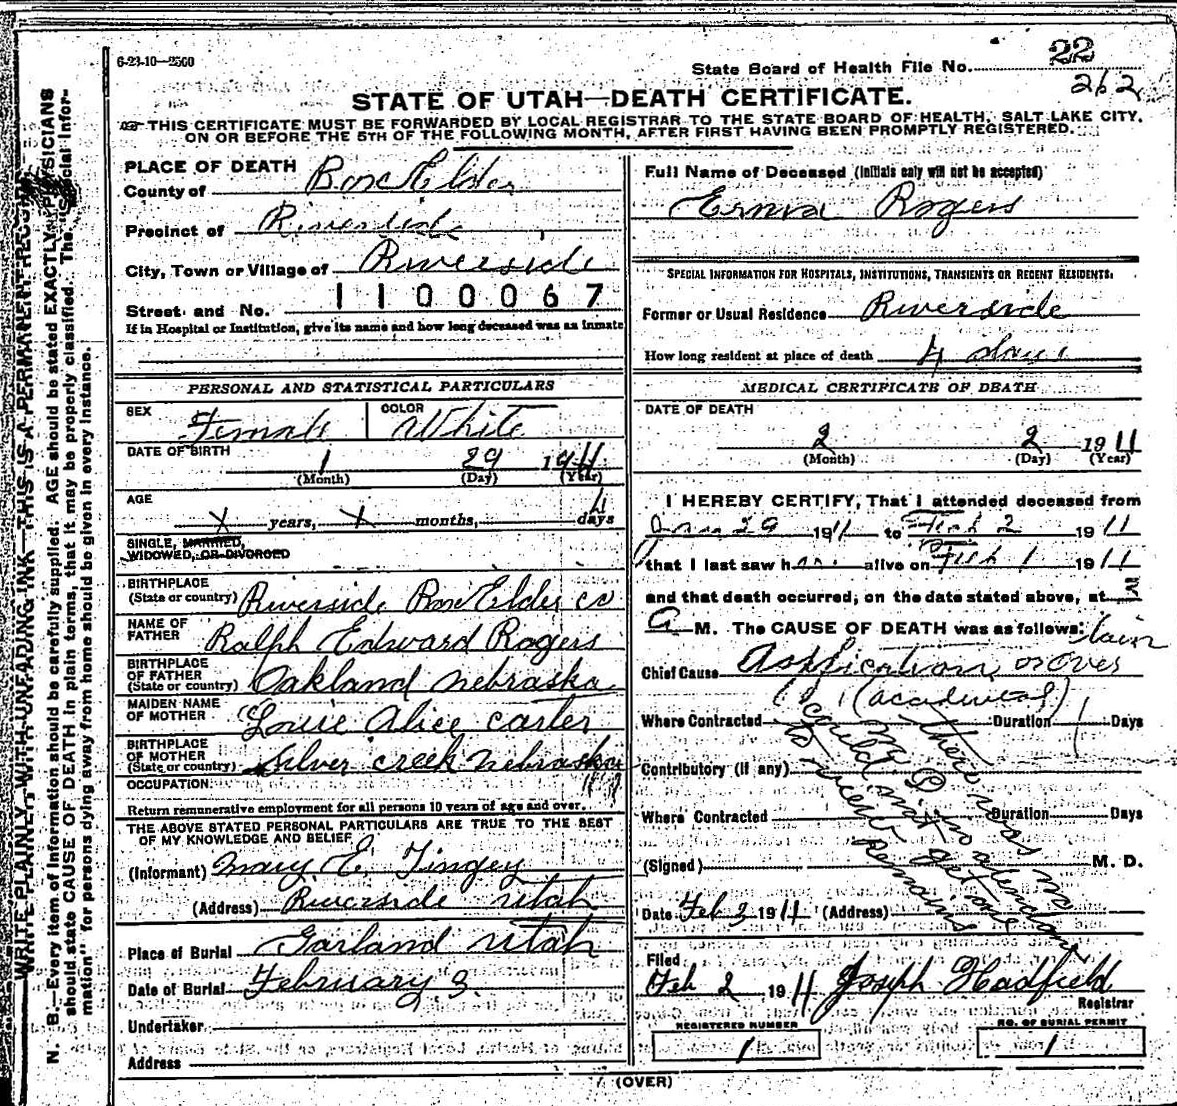 6-23-10—2500
State Board of Health File No. 22
262
STATE OF UTAH—DEATH CERTIFICATE.
THIS CERTIFICATE MUST BE FORWARDED BY LOCAL REGISTRAR TO THE STATE BOARD OF HEALTH, SALT LAKE CITY,
ON OR BEFORE THE 5TH OF THE FOLLOWING MONTH, AFTER FIRST HAVING BEEN PROMPTLY REGISTERED.
PLACE OF DEATH
County of Box Elder
Precinct of Riverside
City, Town or Village of Riverside
Street and No. 1100067
If in Hospital or Institution, give its name and how long deceased was an inmate
PERSONAL AND STATISTICAL PARTICULARS
SEX Female COLOR White
DATE OF BIRTH 1 29 1911
(Month) (Day) (Year)
AGE
X years, X months, 4 days
SINGLE, MARRIED,
WIDOWED, OR DIVORCED
BIRTHPLACE
(State or country) Riverside Box Elder co
NAME OF
FATHER Ralph Edward Rogers
BIRTHPLACE
OF FATHER
(State or country) Oakland nebraska
MAIDEN NAME
OF MOTHER Louie Alice carter
BIRTHPLACE
OF MOTHER
(State or country) Silver creek nebraska
OCCUPATION
Return remunerative employment for all persons 10 years of age and over.
THE ABOVE STATED PERSONAL PARTICULARS ARE TRUE TO THE BEST
OF MY KNOWLEDGE AND BELIEF
(Informant) Mary E. Tingey
(Address) Riverside utah
Place of Burial Garland utah
Date of Burial February 3.
Undertaker
Address
Full Name of Deceased (Initials only will not be accepted)
Erma Rogers
SPECIAL INFORMATION FOR HOSPITALS, INSTITUTIONS, TRANSIENTS OR RECENT RESIDENTS.
Former or Usual Residence Riverside
How long resident at place of death 4 days
MEDICAL CERTIFICATE OF DEATH
DATE OF DEATH
2 2 1911
(Month) (Day) (Year)
I HEREBY CERTIFY, That I attended deceased from
Jan 29 1911 to Feb 2 1911
that I last saw h alive on Feb 1 1911
and that death occurred, on the date stated above, at
A M. The CAUSE OF DEATH was as follows:
Chief Cause
(accidental)
Where Contracted Duration Days
Contributory (if any)
Where Contracted Duration Days
(Signed) M. D.
there was no
M. D. in attendance
could not get one
to view remains
Date Feb 2 1911 (Address)
Filed
Feb 2 1911 Joseph Hadfield
Registrar
REGISTERED NUMBER
1
NO. OF BURIAL PERMIT
1
(OVER)
WRITE PLAINLY WITH UNFADING INK—THIS IS A PERMANENT RECORD
N. B.—Every item of information should be carefully supplied. AGE should be stated EXACTLY. PHYSICIANS
should state CAUSE OF DEATH in plain terms, that it may be properly classified. The "Special Infor-
mation" for persons dying away from home should be given in every instance.